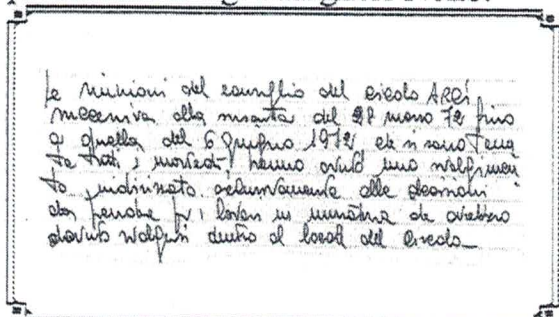 Le riunioni del consiglio del circolo ARCI
successiva alla riunita del 28 marzo 72 fino
a quella del 6 giugno 1972 che si sono tenu
te tutti i martedì hanno avuto uno svolgimen
to indirizzato esclusivamente alle decisioni
da prendere per i lavori in muratura che avrebbero
dovuto svolgersi dentro al locale del circolo